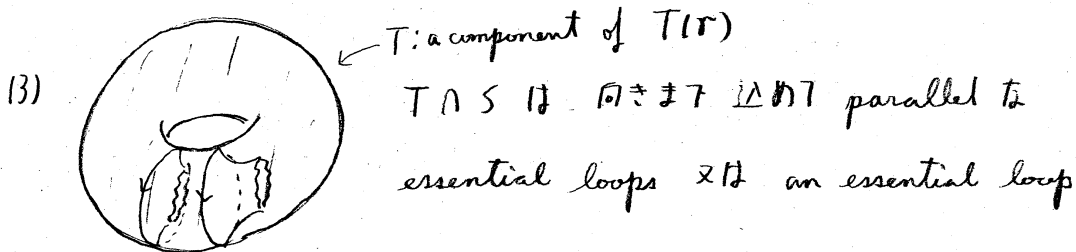 T: a component of T(r)
(3)
T∩S は 向きまで込めて parallel な
essential loops 又は an essential loop